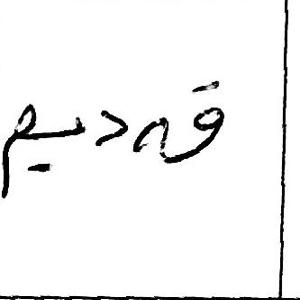 قەدیم